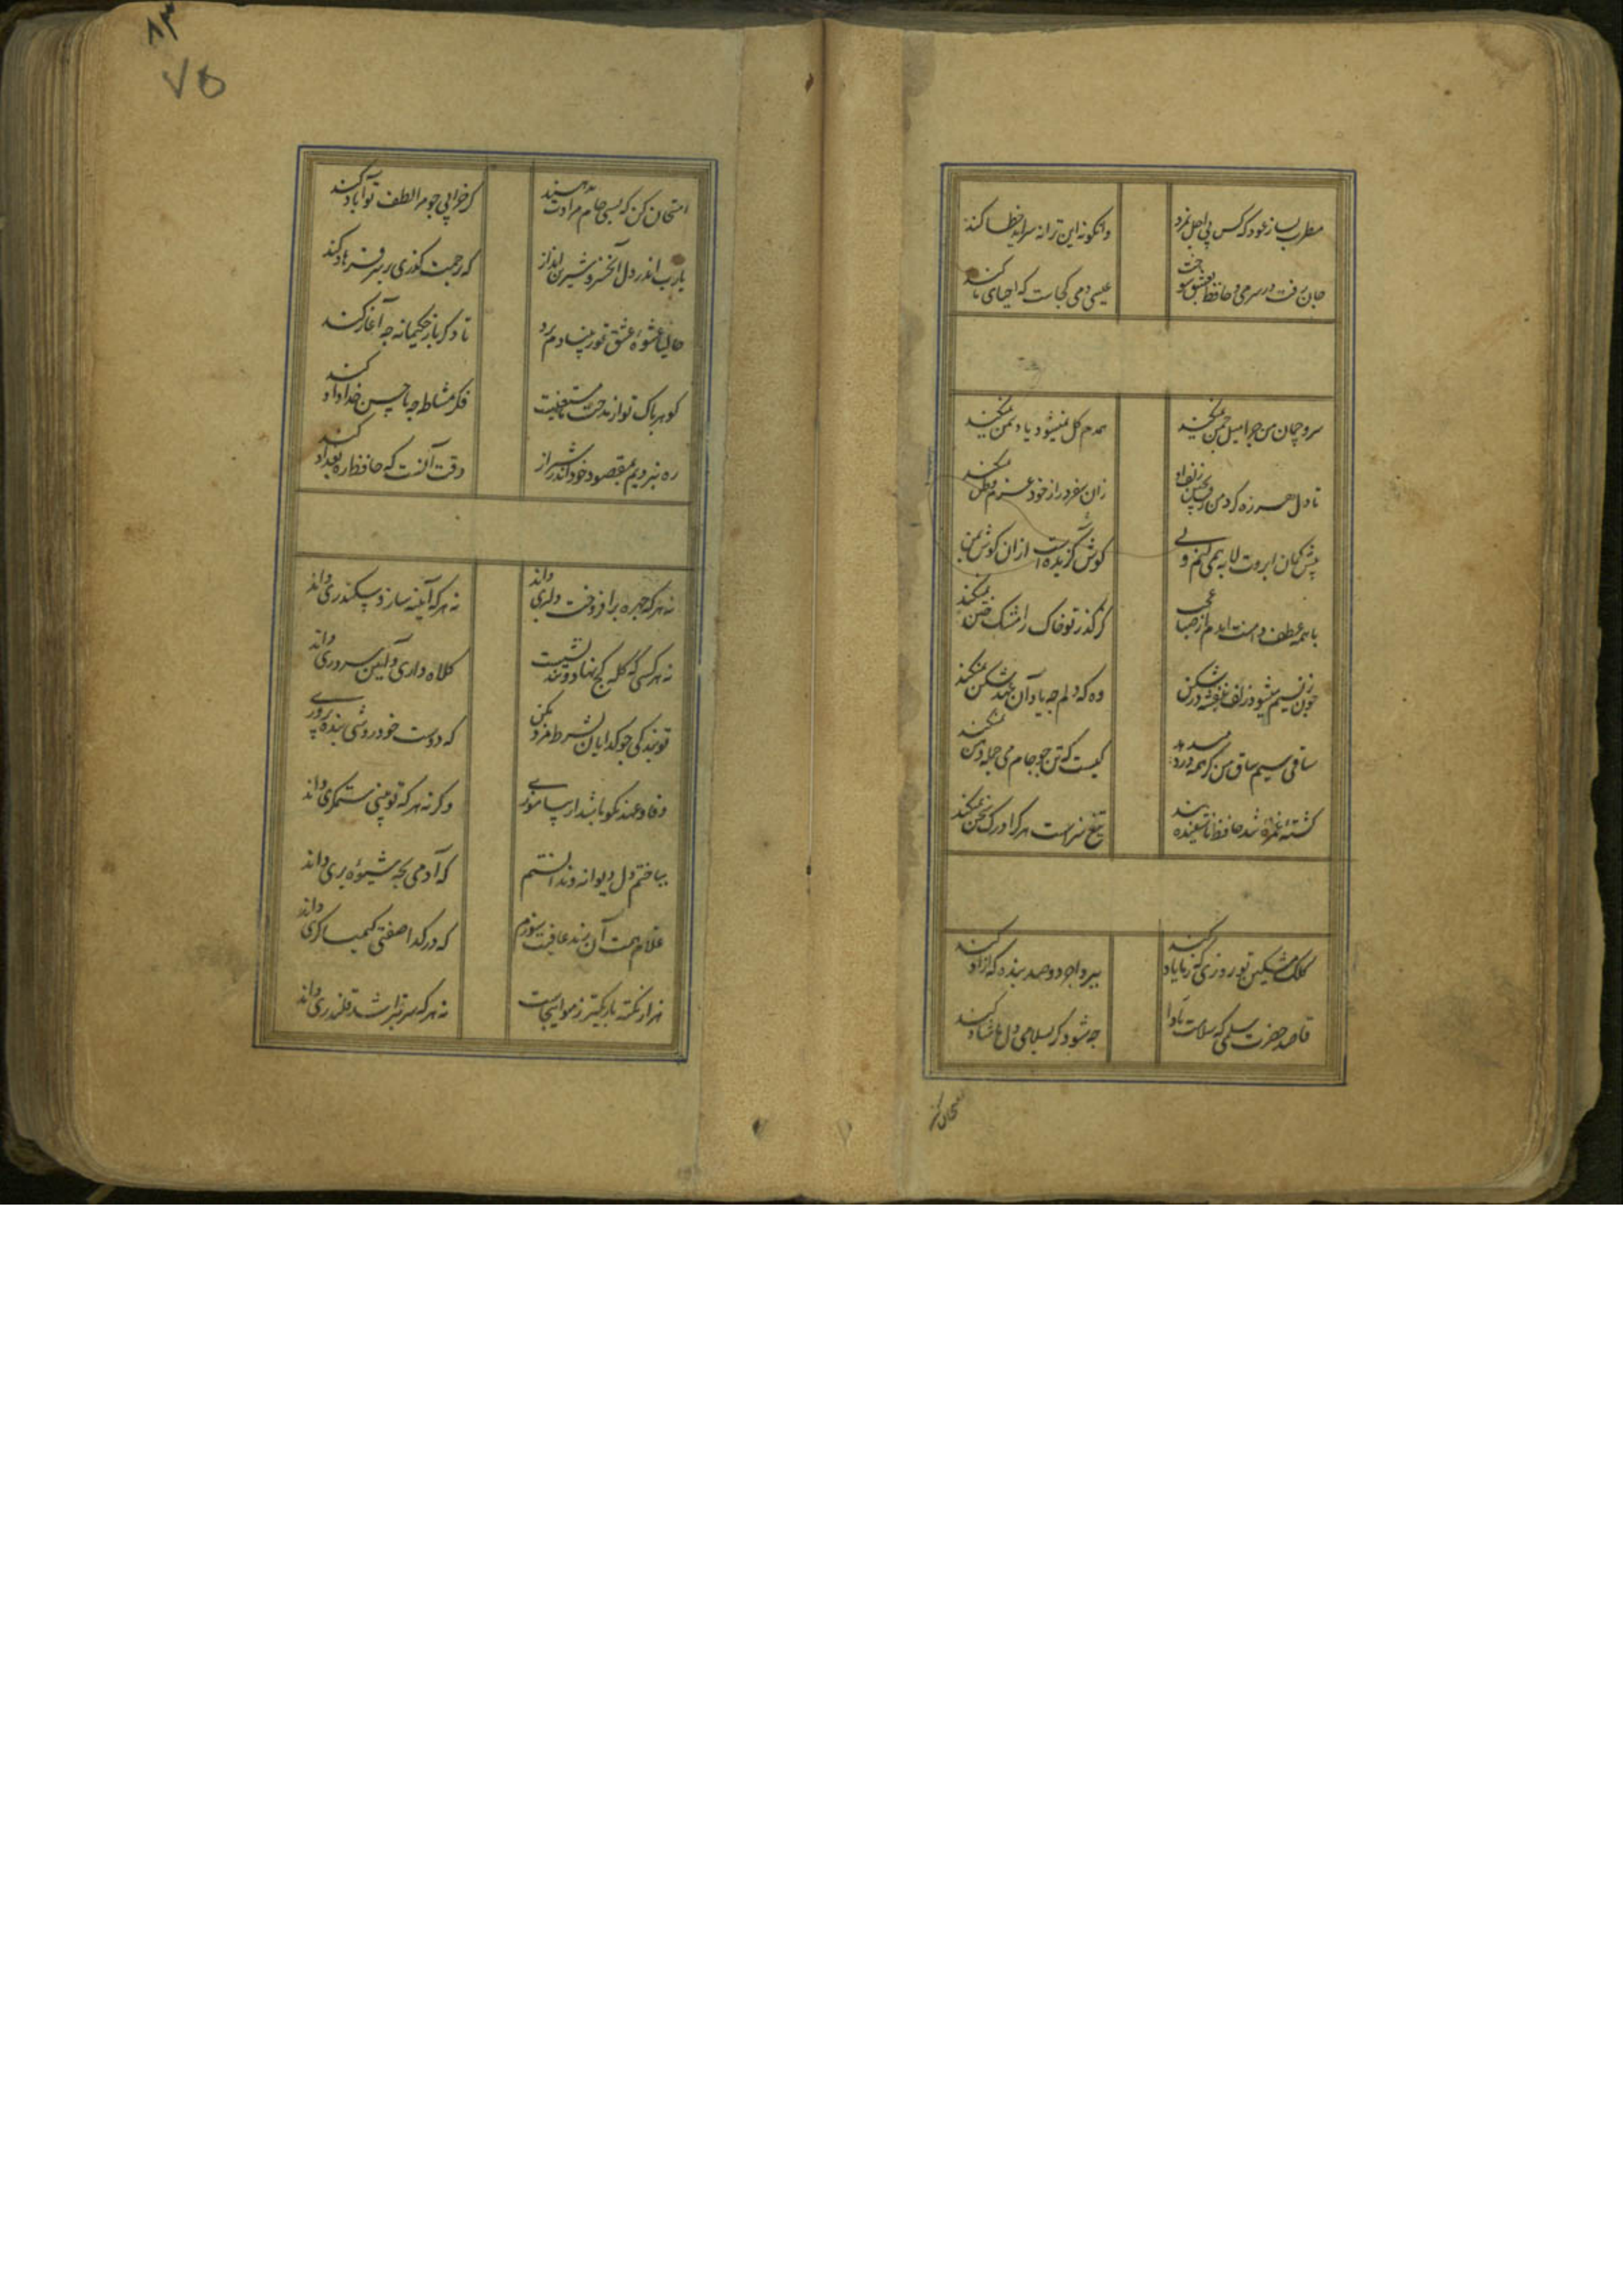 مطرب بساز عود که کس بی اجل نمرد
وانکو نه این ترانه سراید خطا کند
جان رفت در سر می و حافظ بعشق سوخت
عیسی دمی کجاست که احیای ما کند
سرو چمان من چرا میل چمن نمیکند
همدم گل نمیشود یاد سمن نمیکند
تا دل هرزه گرد من رفت بچین زلف او
زان سفر دراز خود عزم وطن نمیکند
پیش کمان ابروت لابه همی کنم ولی
گوش کشیده است از آن گوش بمن نمیکند
با همه عطف دامنت ایدم از صبا عجب
کز گذر تو خاک را مشک ختن نمیکند
چون ز نسیم میشود زلف بنفشه پرشکن
وه که دلم چه یاد آن عهدشکن نمیکند
ساقی سیم ساق من گر همه درد میدهد
کیست که تن چو جام می جمله دهن نمیکند
کشته غمزه شد حافظ ناشنیده پند
تیغ سزاست هر کرا درک سخن نمیکند
کلک مشکین تو روزی که ز ما یاد کند
ببرد اجر دو صد بنده که آزاد کند
قاصد حضرت سلمی که سلامت بادا
چه شود گر بسلامی دل ما شاد کند
امتحان کن
۸۳
۷۵
امتحان کن که بسی جام مرادت بدهند
گر خرابی چو مرا لطف تو آباد کند
یارب اندر دل آن خسرو شیرین انداز
که رحمت گذری بر سر فرهاد کند
حالیا عشوه عشق تو ز بنیادم برد
تا دگر باز حکیمانه چه آغاز کند
گوهر پاک تو از مدحت ما مستغنیست
فکر مشاطه چه با حسن خداداد کند
ره نبردیم بمقصود خود اندر شیراز
وقت آنست که حافظ ره بغداد کند
نه هر که چهره برافروخت دلبری داند
نه هر که آینه سازد سکندری داند
نه هر کسی که کله کج نهاد و تند نشست
کلاه داری و آیین سروری داند
تو بندگی چو گدایان بشرط مزد مکن
که دوست خود روش بنده پروری
وفا و عهد نکو باشد ار بیاموزی
وگرنه هر که تو بینی ستمگری داند
بباختم دل دیوانه و ندانستم
که آدمی بچه شیوه پری داند
غلام همت آن رند عافیت سوزم
که در گدا صفتی کیمیاگری داند
هزار نکته باریکتر ز مو اینجاست
نه هر که سر بتراشد قلندری داند